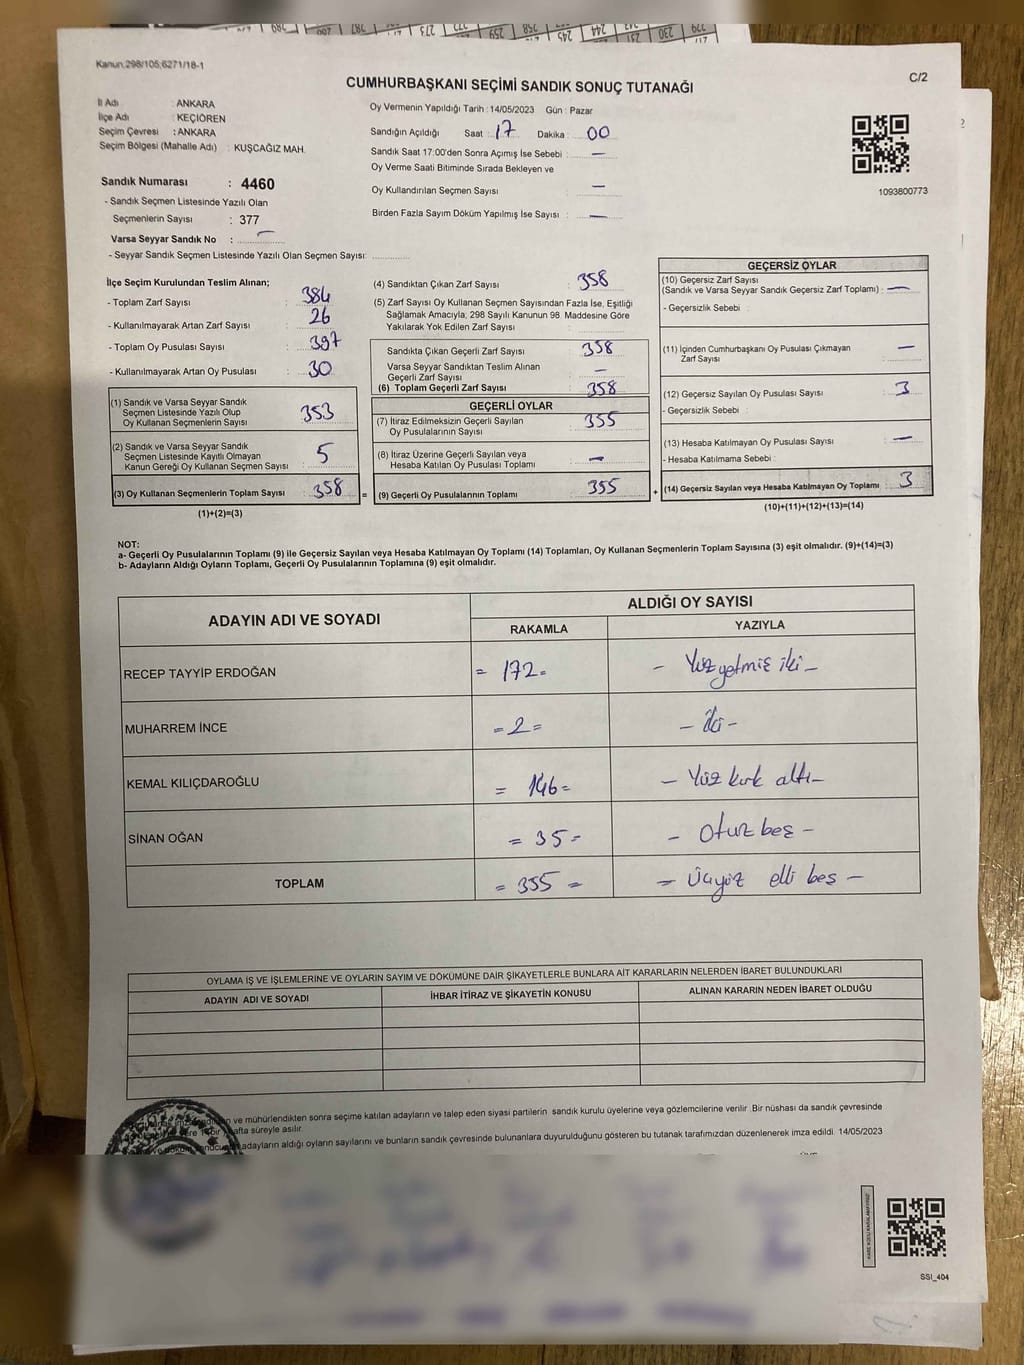 Kanun:298/105;6271/18-1
C/2
CUMHURBAŞKANI SEÇİMİ SANDIK SONUÇ TUTANAĞI
İl Adı : ANKARA
İlçe Adı : KEÇİÖREN
Seçim Çevresi : ANKARA
Seçim Bölgesi (Mahalle Adı) : KUŞCAĞIZ MAH.
Oy Vermenin Yapıldığı Tarih : 14/05/2023 Gün : Pazar
Sandığın Açıldığı Saat : 17 Dakika : 00
Sandık Saat 17:00'den Sonra Açımış İse Sebebi : —
Oy Verme Saati Bitiminde Sırada Bekleyen ve
Oy Kullandırılan Seçmen Sayısı : —
Birden Fazla Sayım Döküm Yapılmış İse Sayısı : —
1093800773
Sandık Numarası : 4460
- Sandık Seçmen Listesinde Yazılı Olan
Seçmenlerin Sayısı : 377
Varsa Seyyar Sandık No : —
- Seyyar Sandık Seçmen Listesinde Yazılı Olan Seçmen Sayısı:
İlçe Seçim Kurulundan Teslim Alınan;
- Toplam Zarf Sayısı : 384
- Kullanılmayarak Artan Zarf Sayısı : 26
- Toplam Oy Pusulası Sayısı : 397
- Kullanılmayarak Artan Oy Pusulası : 30
(1) Sandık ve Varsa Seyyar Sandık
Seçmen Listesinde Yazılı Olup
Oy Kullanan Seçmenlerin Sayısı : 353
(2) Sandık ve Varsa Seyyar Sandık
Seçmen Listesinde Kayıtlı Olmayan
Kanun Gereği Oy Kullanan Seçmen Sayısı : 5
(3) Oy Kullanan Seçmenlerin Toplam Sayısı : 358 =
(1)+(2)=(3)
(4) Sandıktan Çıkan Zarf Sayısı : 358
(5) Zarf Sayısı Oy Kullanan Seçmen Sayısından Fazla İse, Eşitliği
Sağlamak Amacıyla; 298 Sayılı Kanunun 98. Maddesine Göre
Yakılarak Yok Edilen Zarf Sayısı :
Sandıkta Çıkan Geçerli Zarf Sayısı : 358
Varsa Seyyar Sandıktan Teslim Alınan
Geçerli Zarf Sayısı : —
(6) Toplam Geçerli Zarf Sayısı : 358
GEÇERLİ OYLAR
(7) İtiraz Edilmeksizin Geçerli Sayılan
Oy Pusulalarının Sayısı : 355
(8) İtiraz Üzerine Geçerli Sayılan veya
Hesaba Katılan Oy Pusulası Toplamı : —
(9) Geçerli Oy Pusulalarının Toplamı : 355 +
GEÇERSİZ OYLAR
(10) Geçersiz Zarf Sayısı
(Sandık ve Varsa Seyyar Sandık Geçersiz Zarf Toplamı) : —
- Geçersizlik Sebebi :
(11) İçinden Cumhurbaşkanı Oy Pusulası Çıkmayan
Zarf Sayısı : —
(12) Geçersiz Sayılan Oy Pusulası Sayısı : 3
- Geçersizlik Sebebi :
(13) Hesaba Katılmayan Oy Pusulası Sayısı : —
- Hesaba Katılmama Sebebi :
(14) Geçersiz Sayılan veya Hesaba Katılmayan Oy Toplamı : 3
(10)+(11)+(12)+(13)=(14)
NOT:
a- Geçerli Oy Pusulalarının Toplamı (9) ile Geçersiz Sayılan veya Hesaba Katılmayan Oy Toplamı (14) Toplamları, Oy Kullanan Seçmenlerin Toplam Sayısına (3) eşit olmalıdır. (9)+(14)=(3)
b- Adayların Aldığı Oyların Toplamı, Geçerli Oy Pusulalarının Toplamına (9) eşit olmalıdır.
ADAYIN ADI VE SOYADI
ALDIĞI OY SAYISI
RAKAMLA YAZIYLA
RECEP TAYYİP ERDOĞAN = 172 = - Yüz yetmiş iki -
MUHARREM İNCE = 2 = - iki -
KEMAL KILIÇDAROĞLU = 146 = - Yüz kırk altı -
SİNAN OĞAN = 35 = - Otuz beş -
TOPLAM = 355 = = Üçyüz elli beş -
OYLAMA İŞ VE İŞLEMLERİNE VE OYLARIN SAYIM VE DÖKÜMÜNE DAİR ŞİKAYETLERLE BUNLARA AİT KARARLARIN NELERDEN İBARET BULUNDUKLARI
ADAYIN ADI VE SOYADI İHBAR İTİRAZ VE ŞİKAYETİN KONUSU ALINAN KARARIN NEDEN İBARET OLDUĞU
ve mühürlendikten sonra seçime katılan adayların ve talep eden siyasi partilerin sandık kurulu üyelerine veya gözlemcilerine verilir .Bir nüshası da sandık çevresinde
afta süreyle asılır.
adayların aldığı oyların sayılarını ve bunların sandık çevresinde bulunanlara duyurulduğunu gösteren bu tutanak tarafımızdan düzenlenerek imza edildi. 14/05/2023
SSI_404